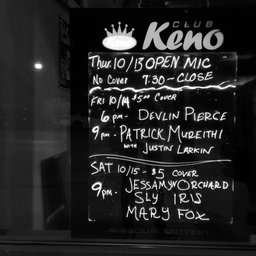 CLUB
Keno
Thur 10/13 OPEN MIC
No Cover 7:30 - CLOSE
FRI 10/14 $5.00 COVER
6pm - DEVLIN PIERCE
9pm - PATRICK MUREITHI
WITH JUSTIN LARKIN
SAT 10/15 - $5 COVER
9pm - JESSAMYN ORCHARD
SLY IRIS
MARY FOX
MISSOURI LOTTERY